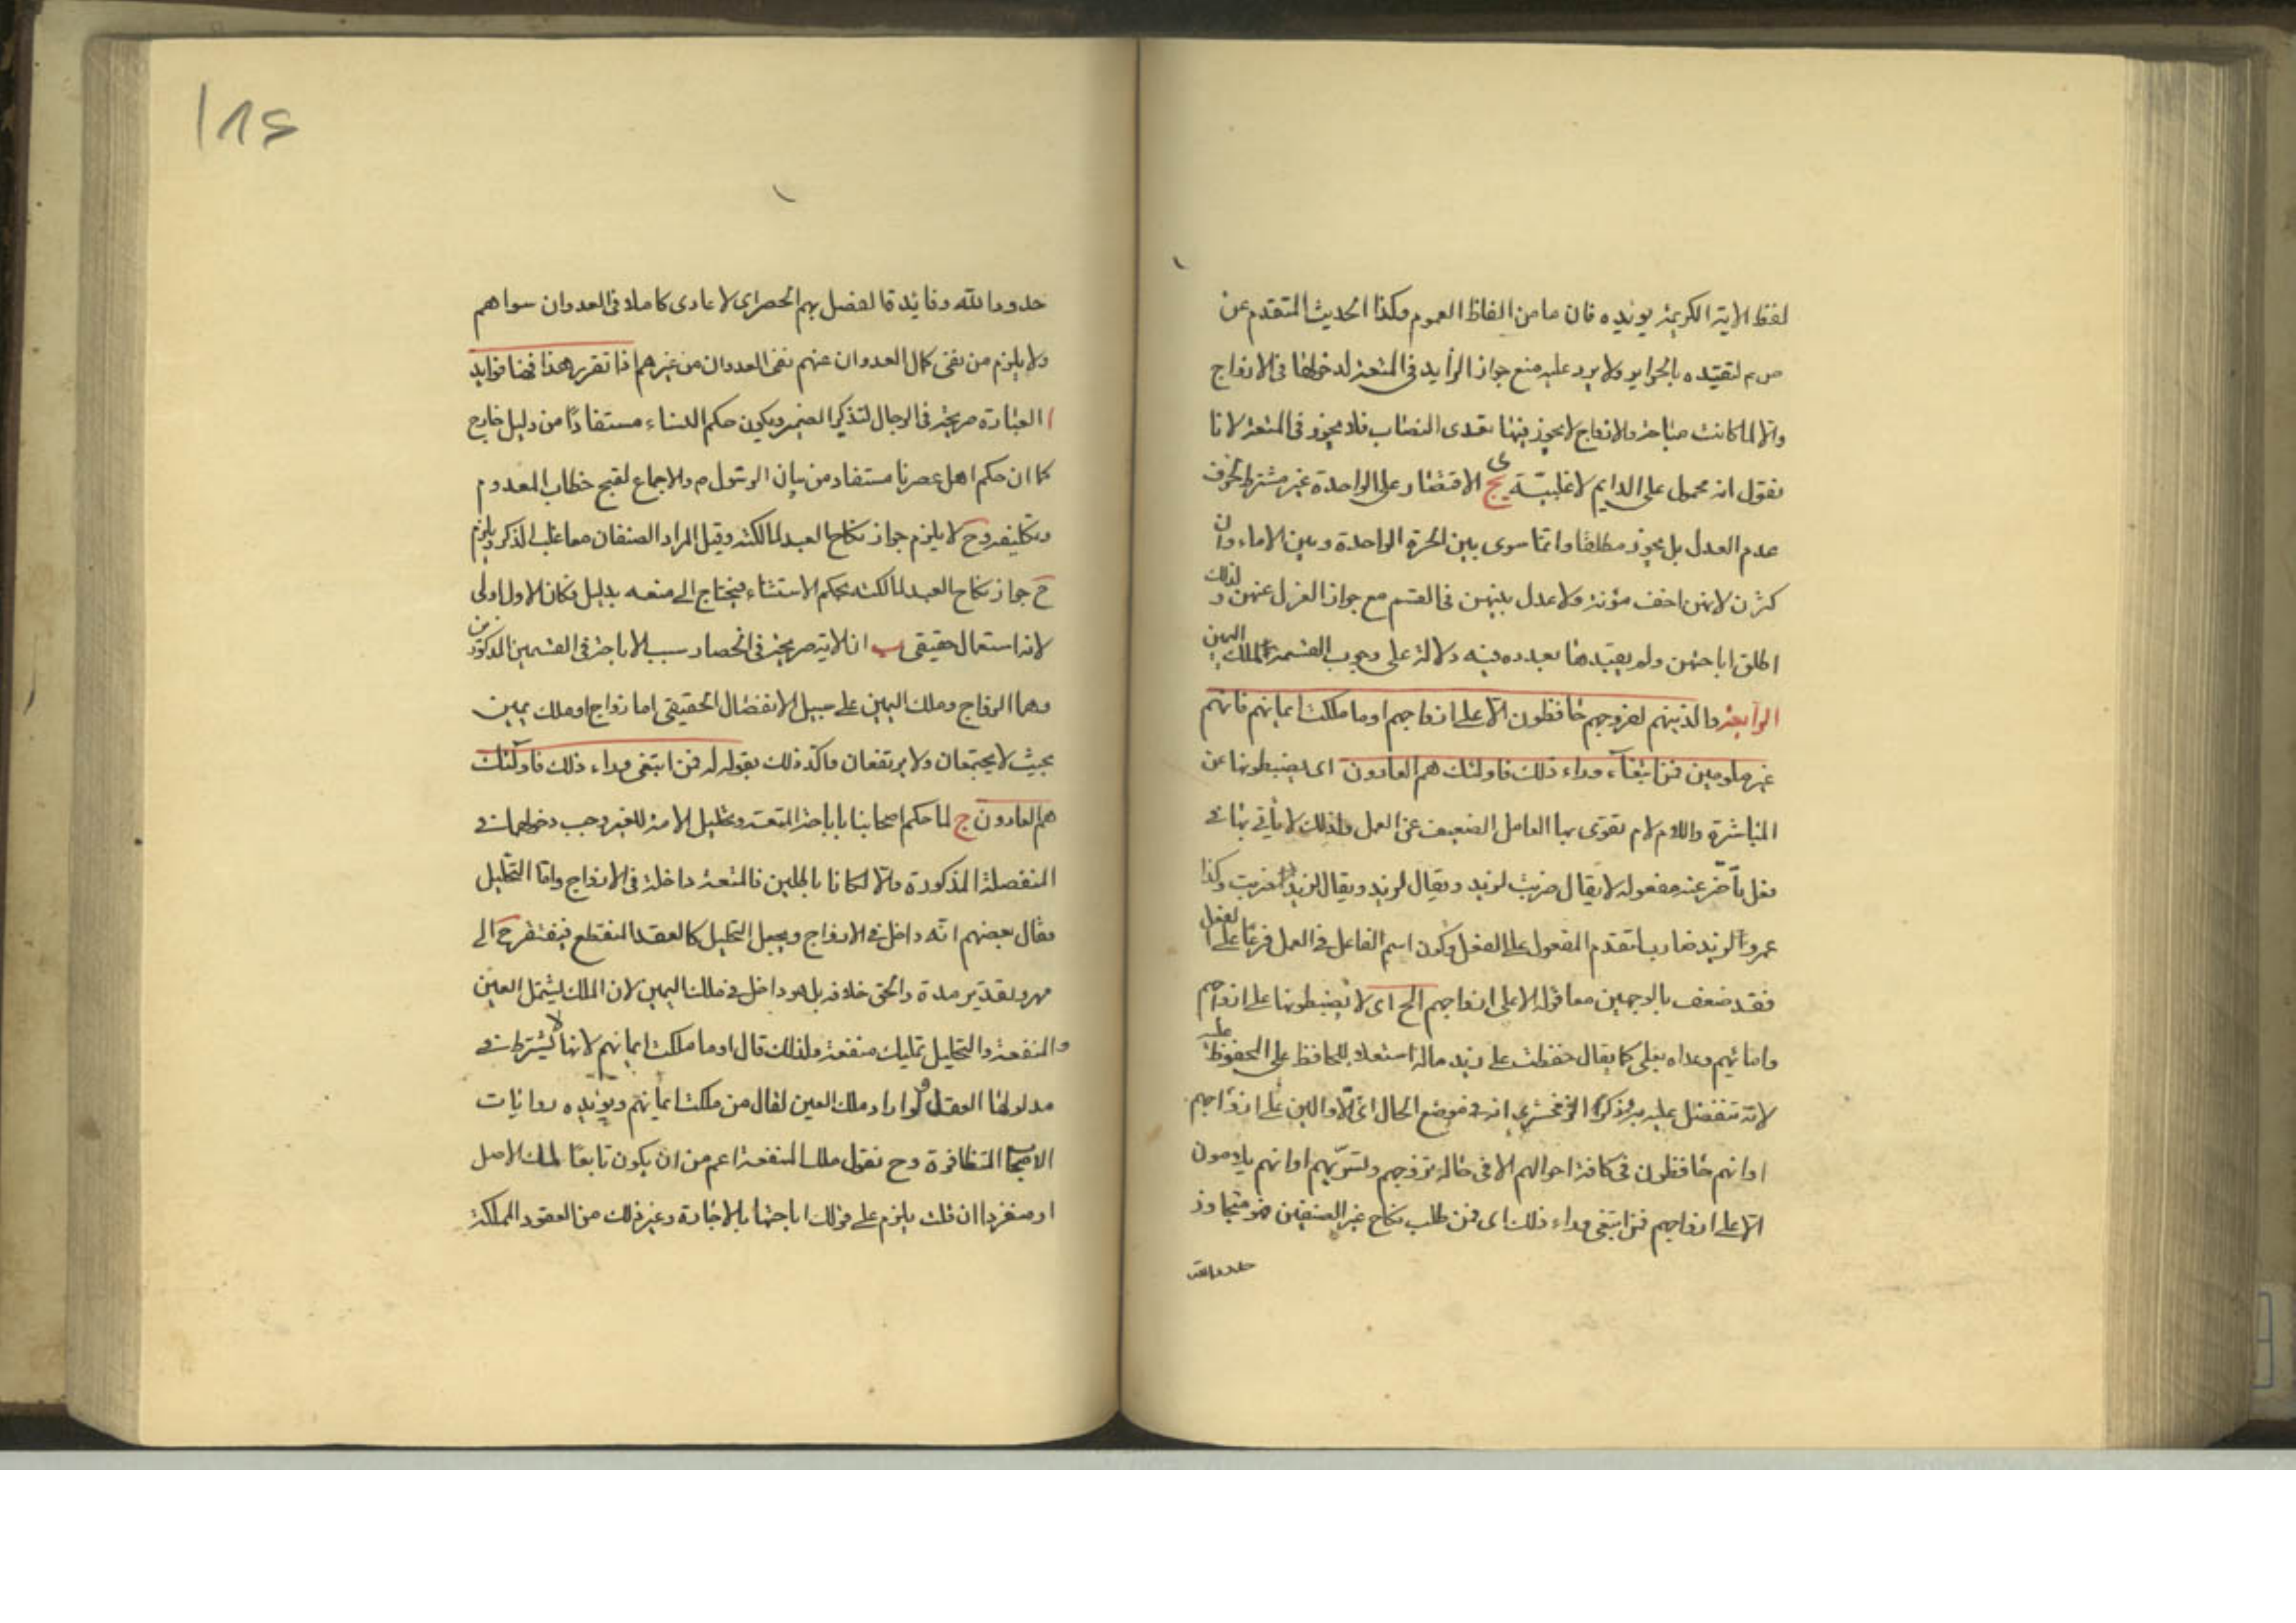 لفظ الاية الكريمة يؤيده فان ما من الفاظ العموم وكذا الحديث المتقدم عن
ص م لتقيده بالحراير ولا يرد عليه منع جواز الزايد في المتعة لدخولها في الازواج
والا لما كانت مباحة والازواج لا يجوز فيها تعدى النصاب فلا يجوز في المتعة لانا
نقول انه محمول على الدايم لاغلبيته يج الاقتصار على الواحدة غير مشترط بخوف
عدم العدل بل يجوز مطلقا وانما سوى بين الحرة الواحدة وبين الاماء وان
كثرن لانهن اخف مؤنة ولا عدل بينهن في القسم مع جواز العزل عنهن ولذلك
اطلق اباحتهن ولم يقيدها بعدد وفيه دلالة على وجوب القسمة لملك اليمين
الرابعة والذينهم لفروجهم حافظون الا على ازواجهم او ما ملكت ايمانهم فانهم
غير ملومين فمن ابتغاء وراء ذلك فاولئك هم العادون اى يضبطونها عن
المباشرة واللام لام تقوى بها العامل الضعيف عن العمل ولذلك لا يأتي بها في
فعل تأخر عنه مفعوله لا يقال ضربت لزيد ويقال لزيد ضربت وكذا
عمرو لزيد ضارب لتقدم المفعول على الفعل وكون اسم الفاعل في العمل فرعا على الفعل
فقد ضعف بالوجهين معا قوله الا على ازواجهم الخ اى لا يضبطونها على ازواجهم
وامائهم وعداه بعلى كما يقال حفظت على زيد ماله استعلاء للحافظ على المحفوظ عليه
لانه متفضل عليه به وذكر الزمخشري انه في موضع الحال اى الا والين على ازواجهم
او انهم حافظون في كافة احوالهم الا في حالة تزوجهم وتسريهم او انهم يلامون
الا على ازواجهم فمن ابتغى وراء ذلك اى فمن طلب نكاح غير الصنفين فهو متجاوز
حدود الله
١٨٤
حدود الله وفايدة الفصل بهم الحصر اى لا عادى كاملا في العدوان سواهم
ولا يلزم من نفى كمال العدوان عنهم نفى العدوان من غيرهم اذا تقرر هذا فهنا فوايد
ا العبارة صريحة في الرجال لتذكير الضمير ويكون حكم النساء مستفادا من دليل خارج
كما ان حكم اهل عصرنا مستفاد من بيان الرسول م والاجماع لقبح خطاب المعدوم
وتكليفه وح لا يلزم جواز نكاح العبد لمالكته وقيل المراد الصنفان معا غلب الذكر ويلزم
ح جواز نكاح العبد لمالكته بحكم الاستثناء فيحتاج الى منعه بدليل فكان الاول اولى
لانه استعمال حقيقى ب ان الاية صريحة في انحصار سبب الاباحة في القسمين المذكورين
وهما الزواج وملك اليمين على سبيل الانفصال الحقيقى اما زواج او ملك يمين
بحيث لا يجتمعان ولا يرتفعان واكد ذلك بقوله فمن ابتغى وراء ذلك فاولئك
هم العادون ج لما حكم اصحابنا باباحة المتعة وتحليل الامة للغير وجب دخولهما في
المنفصلة المذكورة والا لكانا باطلين فالمتعة داخلة في الازواج واما التحليل
فقال بعضهم انه داخل في الازواج ويجعل التحليل كالعقد المنقطع فيفتقر ح الى
مهر وتقدير مدة والحق خلافه بل هو داخل في ملك اليمين لان الملك يشتمل العين
والمنفعة والتحليل تمليك منفعة ولذلك قال او ما ملكت ايمانهم لانها لا يشترط في
مدلولها العقل ولو اراد ملك العين لقال من ملكت ايمانهم ويؤيده روايات
الاصحاب المتظافرة وح نقول ملك المنفعة اعم من ان يكون تابعا لملك الاصل
او منفردا ان قلت يلزم على قولك اباحتها بالاجارة وغير ذلك من العقود المملكة